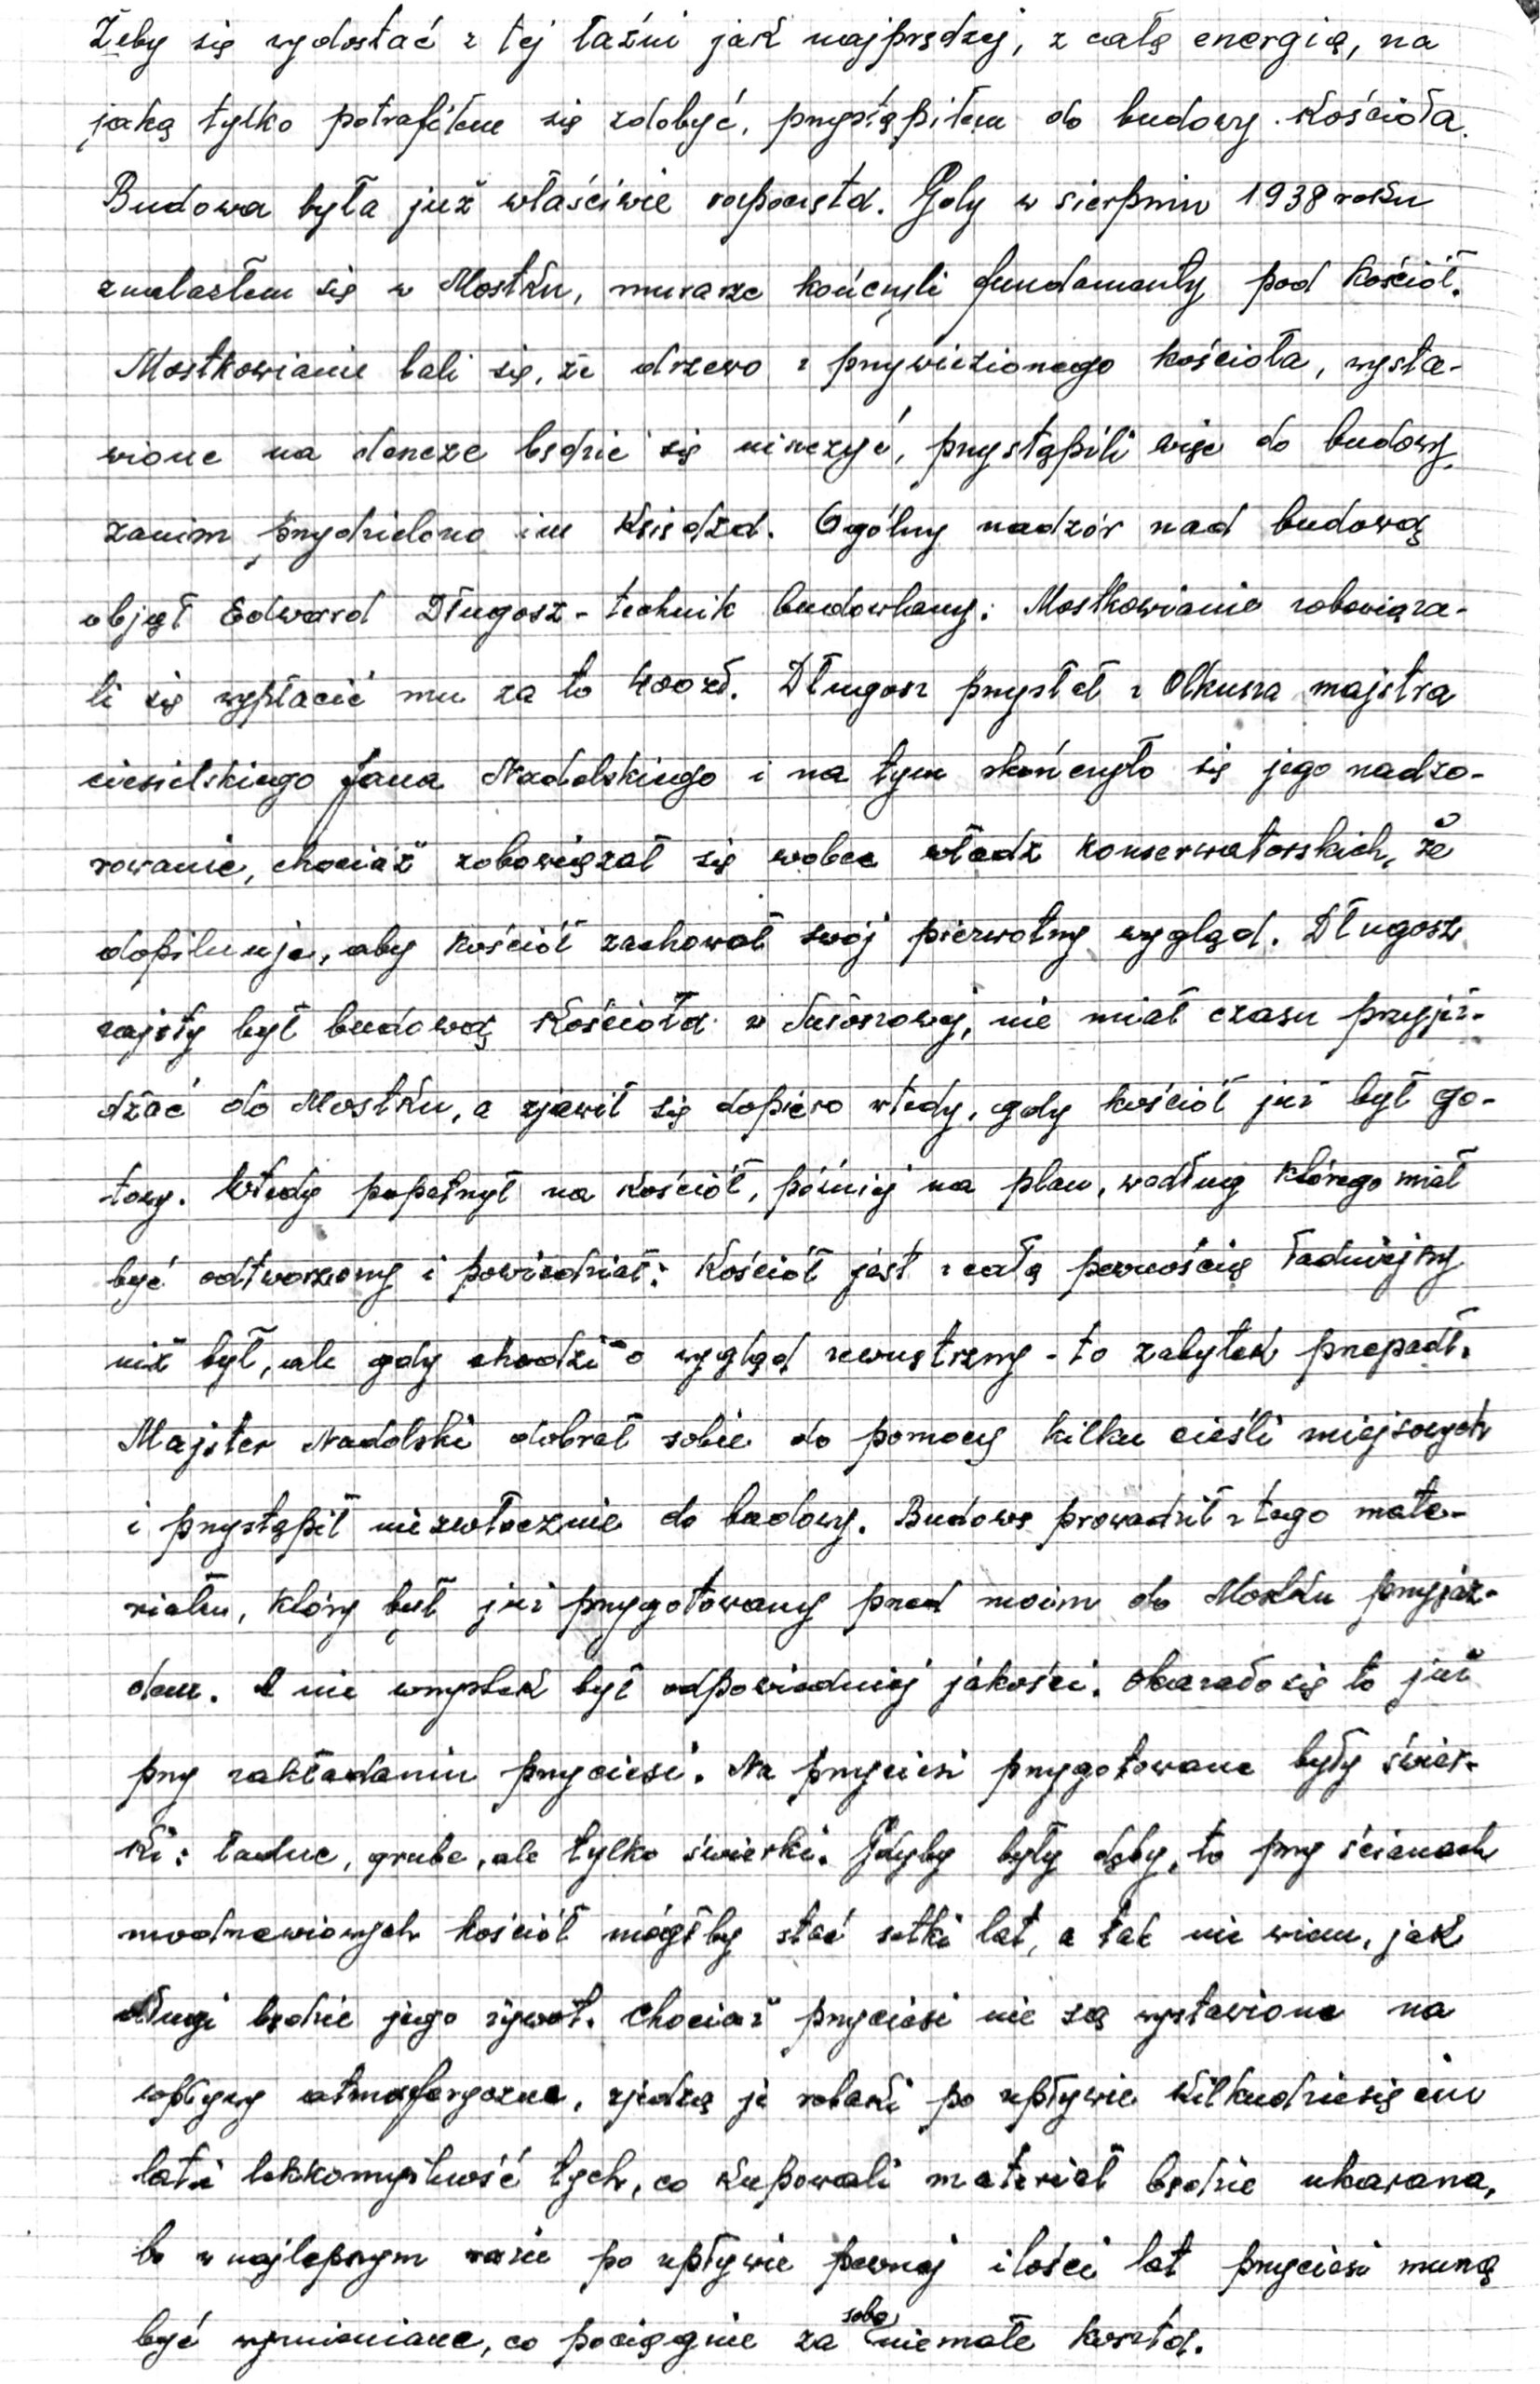 Żeby się wydostać z tej łaźni jak najprędzej, z całą energią, na
jaką tylko potrafiłem się zdobyć, przystąpiłem do budowy kościoła.
Budowa była już właściwie rozpoczęta. Gdy w sierpniu 1938 roku
znalazłem się w Mostku, murarze kończyli fundamenty pod kościół.
Mostkowianie bali się, że drzewo z przywiezionego kościoła, wysta-
wione na deszcze będzie się niszczyć, przystąpili więc do budowy,
zanim przydzielono im Księdza. Ogólny nadzór nad budową
objął Edward Długosz - technik budowlany. Mostkowianie zobowiąza-
li się wypłacić mu za to 400 zł. Długosz przysłał z Olkusza majstra
ciesielskiego Jana Nadolskiego i na tym skończyło się jego nadzo-
rowanie, chociaż zobowiązał się wobec władz konserwatorskich, że
dopilnuje, aby kościół zachował swój pierwotny wygląd. Długosz
zajęty był budową kościoła w Sułoszowej, nie miał czasu przyjeż-
dżać do Mostku, a zjawił się dopiero wtedy, gdy kościół już był go-
towy. Wtedy popatrzył na kościół, później na plan, według którego miał
być odtworzony i powiedział: Kościół jest z całą pewnością ładniejszy
niż był, ale gdy chodzi o wygląd zewnętrzny - to zabytek przepadł.
Majster Nadolski dobrał sobie do pomocy kilku cieśli miejscowych
i przystąpił niezwłocznie do budowy. Budowę prowadził z tego mate-
riału, który był już przygotowany przed moim do Mostku przyjaz-
dem. A nie wszystek był odpowiedniej jakości. Okazało się to już
przy zakładaniu przyciesi. Na przyciesi przygotowane były świer-
ki: ładne, grube, ale tylko świerki. Gdyby były dęby, to przy ścianach
modrzewiowych kościół mógłby stać setki lat, a tak nie wiem, jak
długi będzie jego żywot. Chociaż przyciesi nie są wystawione na
wpływy atmosferyczne, zjedzą je robaki po upływie kilkudziesięciu
lat i lekkomyślność tych, co kupowali materiał będzie ukarana,
bo w najlepszym razie po upływie pewnej ilości lat przyciesi muszą
być wymieniane, co pociągnie za sobą niemałe koszta.